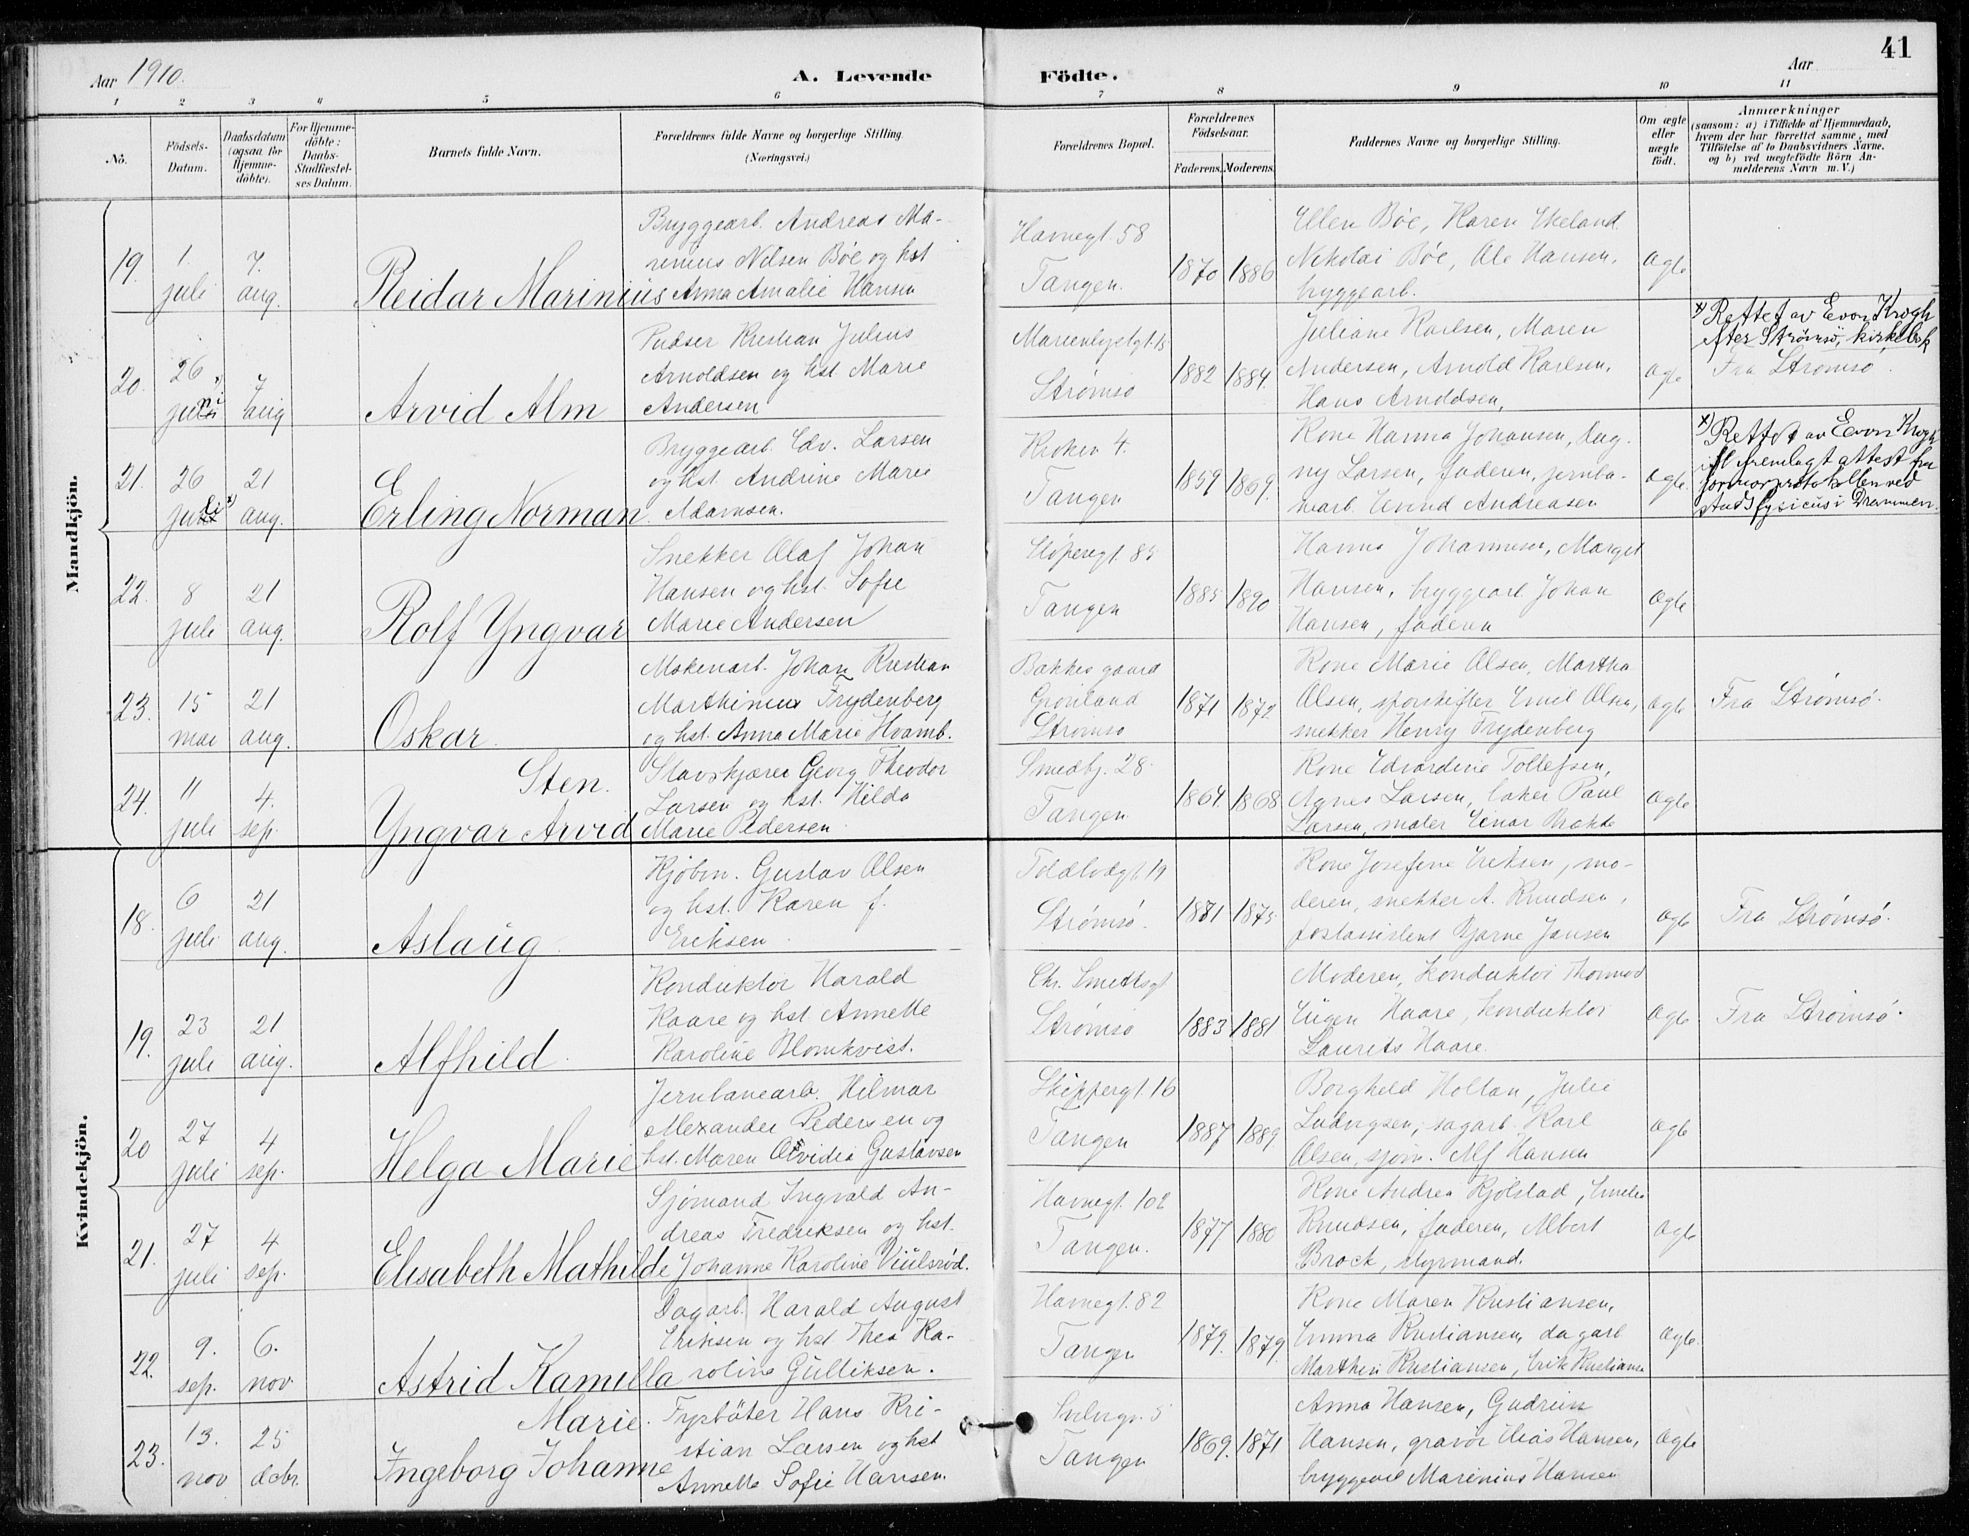 41
Aar 1910.
A. Levende Födte.
Aar
1 2 3 4 5 6 7 8 9 10 11
No.
Födsels-
Datum.
Daabsdatum
(ogsaa for
Hjemme-
döbte).
For Hjemme-
döbte:
Daabs-
Stadfæstel-
ses Datum.
Barnets fulde Navn.
Forældrenes fulde Navne og borgerlige Stilling.
(Næringsvei.)
Forældrenes Bopæl.
Forældrenes
Födselsaar.
Faderens. Moderens.
Faddernes Navne og borgerlige Stilling.
Om ægte
eller
uægte
født.
Anmærkninger
(saasom: a) i Tilfælde af Hjemmedaab,
hvem der har forrettet samme, med
Tilföielse af to Daabsvidners Navne,
og b) ved uægtefödte Börn An-
melderens Navn m. V.)
Mandkjön.
19.
1.
juli
7.
aug.
Reidar Marinius
Bryggearb. Andreas Ma-
rinius Nilsen Böe og hst
Anna Amalie Hansen
Havnegt. 58
Tangen.
1870 1886
Ellen Böe, Karen Ekeland
Nikolai Böe, Ole Hansen,
bryggearb.
Ægte
20.
26
juni x)
7
aug
Arvid Alm
Pudser Kristian Julius
Arnoldsen og hst Marie
Andersen
Marienlystgt. 13
Strømsø
1882 1884.
Juliane Karlsen, Maren
Andersen, Arnold Karlsen,
Hans Arnoldsen,
Ægte
x) Rettet av Evon Krogh
efter Strømsø, kirkebok
Fra Strømsø.
21.
26
juli x)
21
aug.
Erling Norman
Bryggearb. Edv. Larsen
og hst. Andrine Marie
Adamsen.
Kroken 4.
Tangen
1859 1869.
Kone Hanna Johansen, Dag-
ny Larsen, faderen, jernba-
nearb. Eivind Andreasen
Ægte.
x) Rettet av Evon Krogh
ifl fremlagt attest fra
jormorprotokollen ved
Stadsfysicus i Drammen.
22.
8
juli
21
aug.
Rolf Yngvar
Snekker Olaf Johan
Hansen og hst. Sofie
Marie Andersen
Støperegt. 85
Tangen
1885 1890
Hanna Johannesen, Marget
Hansen, bryggearb Johan
Hansen, faderen
Ægte
23.
15
mai
21
aug.
Oskar
Johan Kristian
Marthinius Frydenberg
og hst. Anna Marie Hvamb.
Bakkes gaard
Grønland
Strømsø
1871 1872
Kone Marie Olsen, Martha
Olsen, sporskifter Emil Olsen,
snekker Henry Frydenberg
Ægte
Fra Strømsø.
24.
11
juli
4.
sep.
Sten.
Yngvar Arvid
Stavskjærer Georg Theodor
Larsen og hst. Hilda
Marie Pedersen
Smedbj. 28.
Tangen
1864 1868
Kone Edvardine Tollefsen,
Agnes Larsen, baker Paul
Larsen, maler Einar
Ægte
Kvindekjön.
18.
6
juli
21
aug.
Aslaug
Kjøbm. Gustav Olsen
og hst. Karen f.
Eriksen
Toldbodgt. 19
Strømsø.
1881 1875
Kone Josefine Eriksen, mo-
deren, snekker A. Knudsen,
postassistent Bjarne Jansen
Ægte
Fra Strømsø.
19.
23
juli
21
aug.
Alfhild.
Konduktör Harald
Haare og hst Annette
Karoline Blomkvist.
Chr. Smethsgt
Strømsø
1883 1881
Moderen, konduktör Thormod
Eugen Haare, konduktör
Laurits Haare.
Ægte
Fra Strømsø.
20
27
juli
4
sep.
Helga Marie
Jernbanearb. Hilmar
Alexander Pedersen og
hst. Maren Gustavsen
Skippergt. 16
Tangen
1887 1889
Borghild Holtan, Julie
Ludvigsen, sagarb. Karl
Olsen, sjøm. Alf Hansen
Ægte
21.
27
juli
4
sep.
Elisabeth Mathilde
Sjömand Ingvald An-
dreas Fredriksen og hst.
Johanne Karoline Viulsröd.
Havnegt. 102
Tangen.
1877 1880
Kone Andrea Kjölstad, Emelie
Knudsen, faderen, Albert
Brock, styrmand.
Ægte
22.
9.
sep.
6.
nov
Astrid Kamilla
Dagarb. Harald August
Eriksen og hst Thea Ka-
roline Gulliksen.
Havnegt. 82
Tangen
1879. 1879.
Kone Maren Kristiansen,
Emma Kristiansen, dagarb
Marthin Kristiansen, Erik Kristiansen
Ægte.
23.
13.
nov
25
decbr.
Marie.
Ingeborg Johanne
Fyrböter Hans Kri-
stian Larsen og hst
Annette Sofie Hansen.
5
Tangen
1869. 1871
Anna Hansen, Gudrun
Hansen, gravör Elias Hansen,
bryggearb Marinius Hansen
Ægte